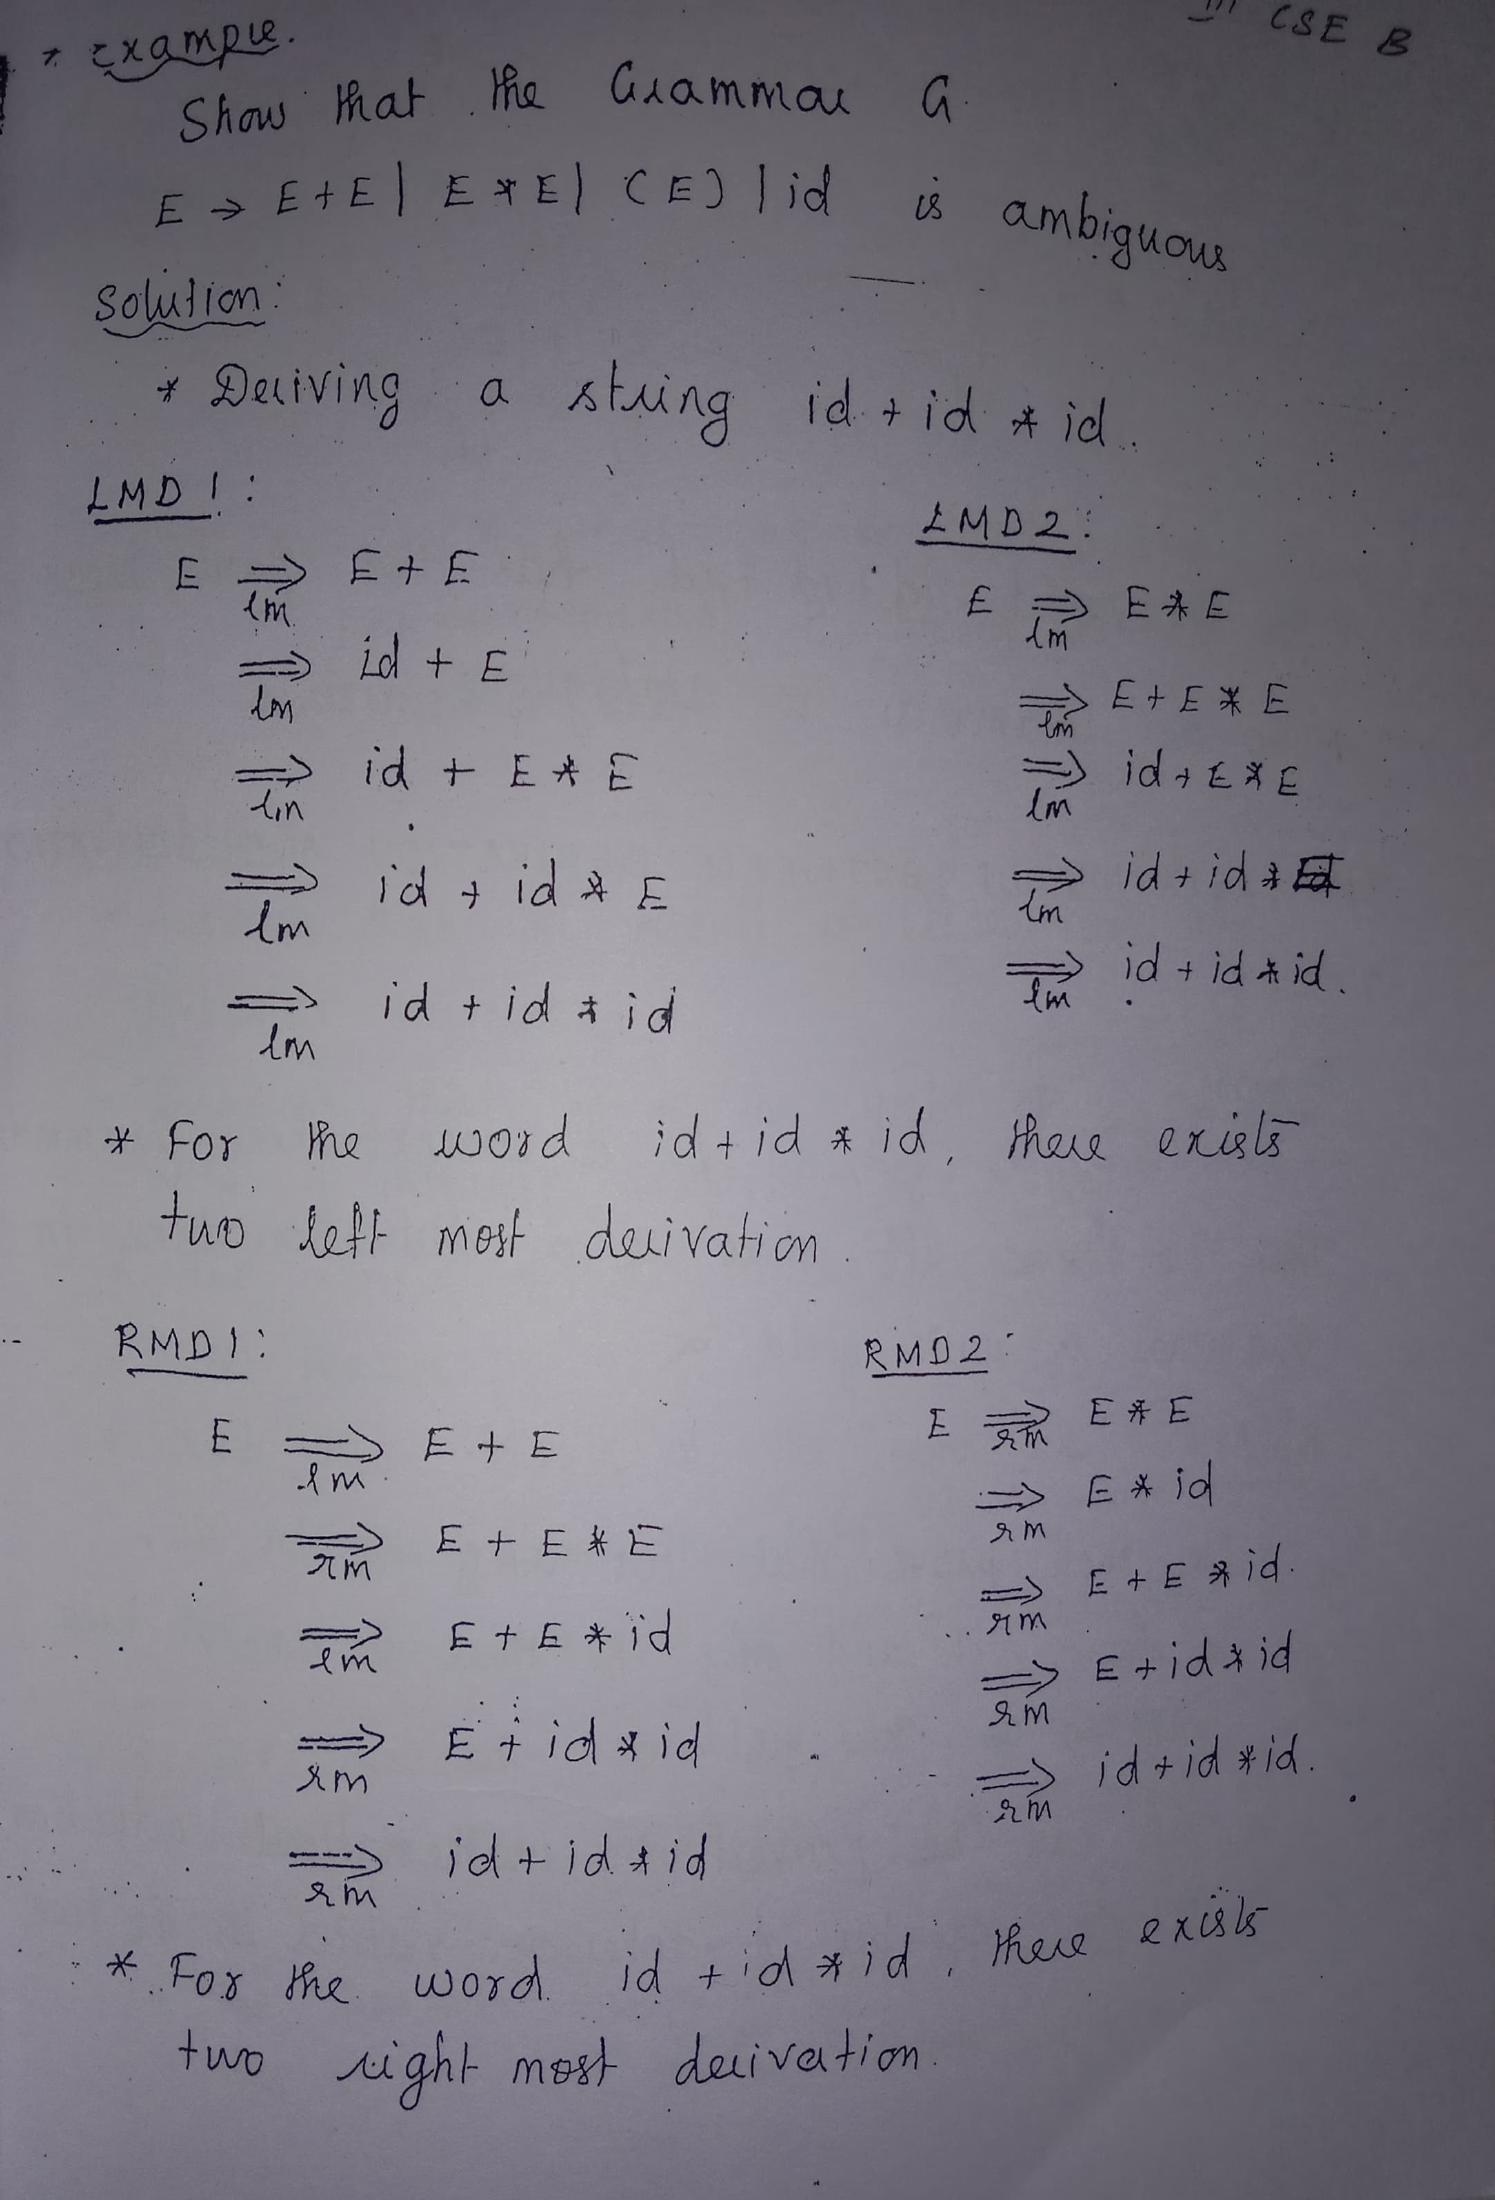 III CSE B
* Example.
Show that the Grammar G
E → E+E | E*E | (E) | id is ambiguous
Solution:
* Deriving a string id + id * id.
LMD 1:
E ⇒ E + E
lm
⇒ id + E
lm
⇒ id + E * E
lm
⇒ id + id * E
lm
⇒ id + id * id
lm
LMD2:
E ⇒ E * E
lm
⇒ E + E * E
lm
⇒ id + E * E
lm
⇒ id + id * E
lm
⇒ id + id * id.
lm
* For the word id + id * id, there exists
two left most derivation.
RMD1:
E ⇒ E + E
lm
⇒ E + E * E
rm
⇒ E + E * id
lm
⇒ E + id * id
rm
⇒ id + id * id
rm
RMD2:
E ⇒ E * E
rm
⇒ E * id
rm
⇒ E + E * id.
rm
⇒ E + id * id
rm
⇒ id + id * id.
rm
* For the word id + id * id, there exists
two right most derivation.